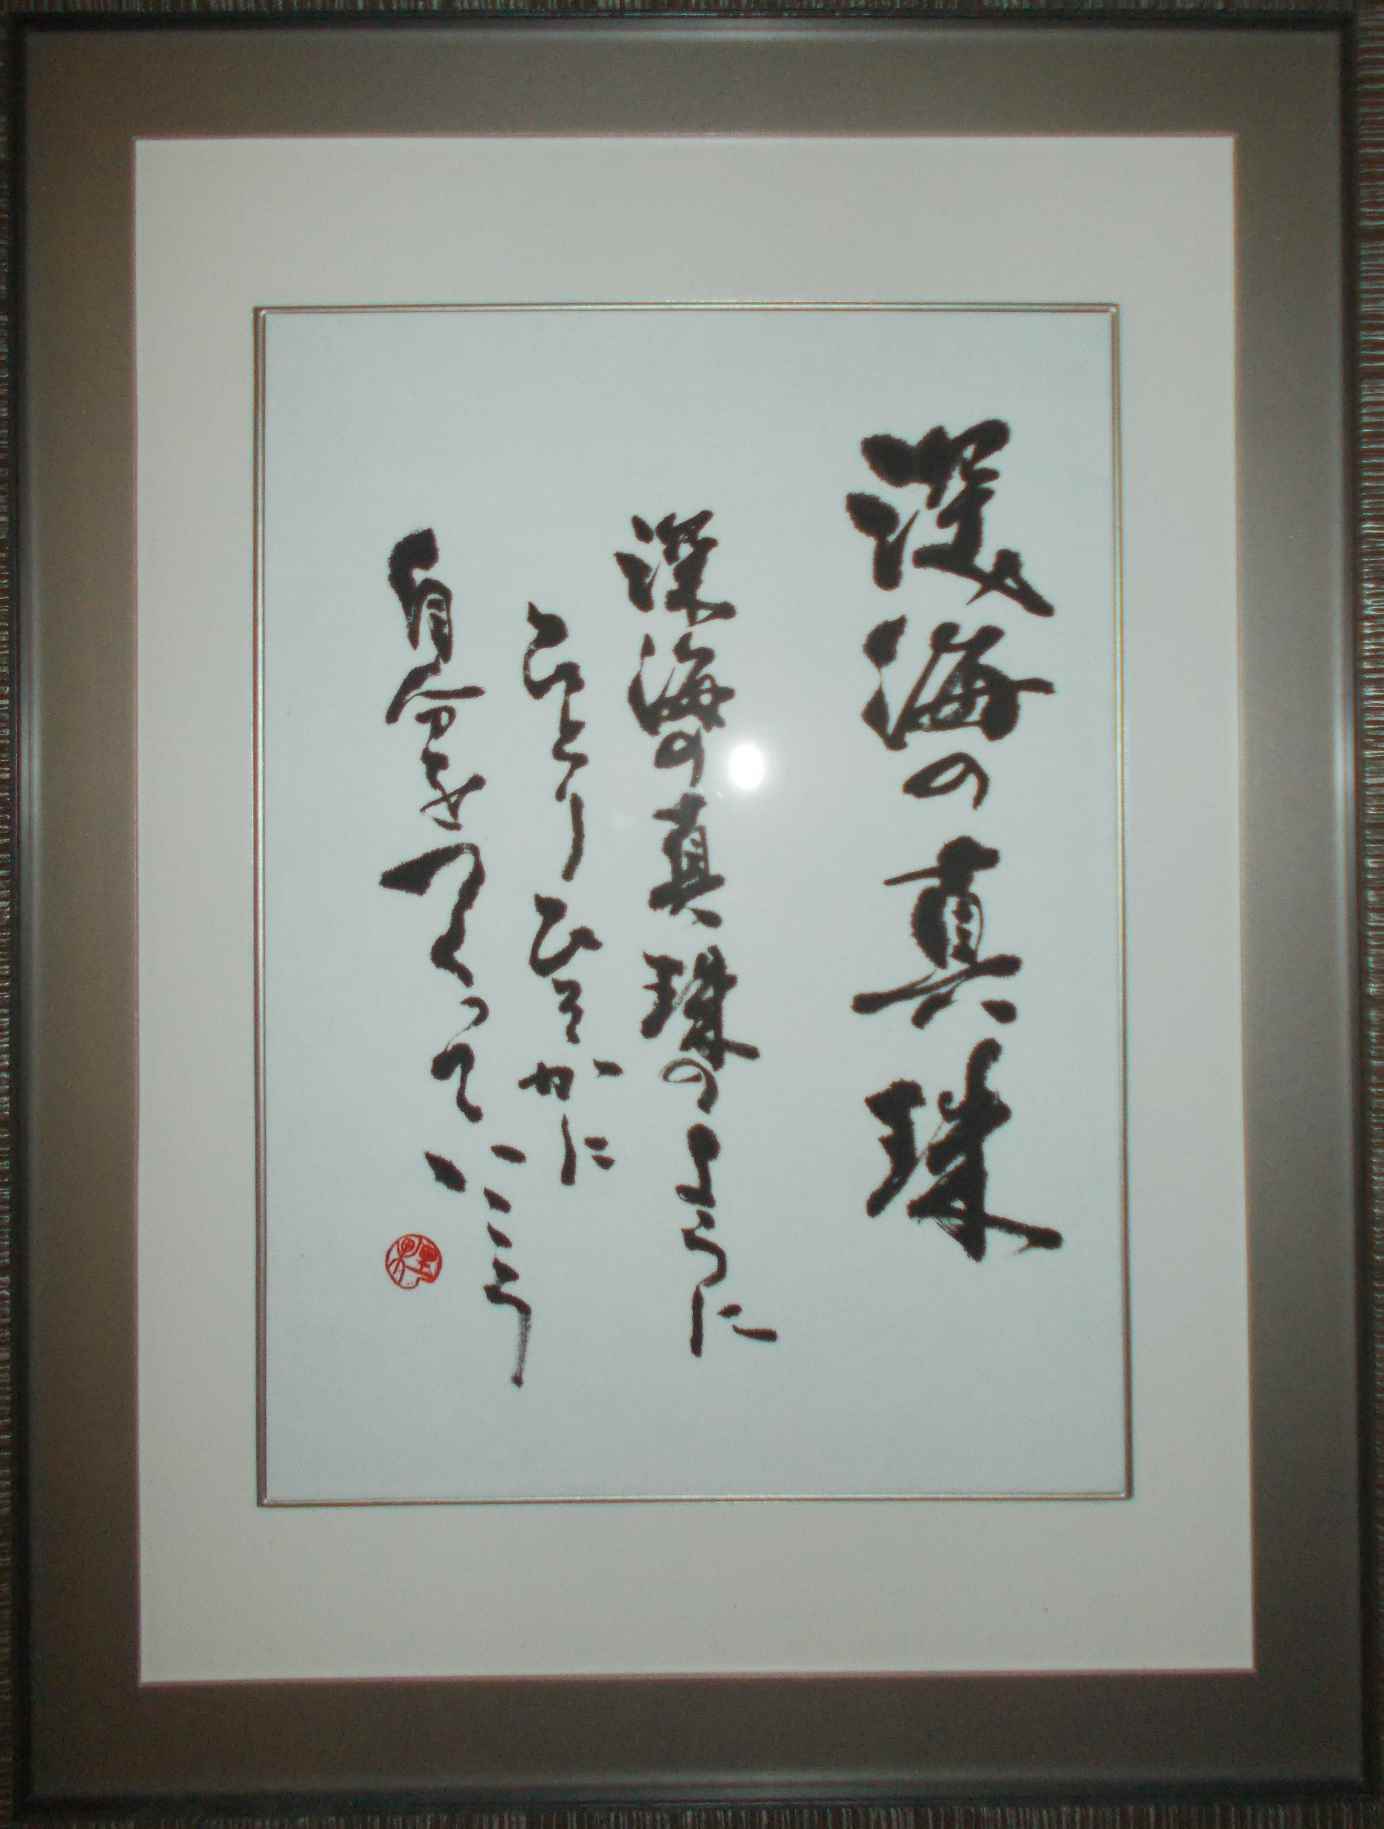 深海の真珠
深海の真珠のように
ひとりひそかに
自分をつくっていこう